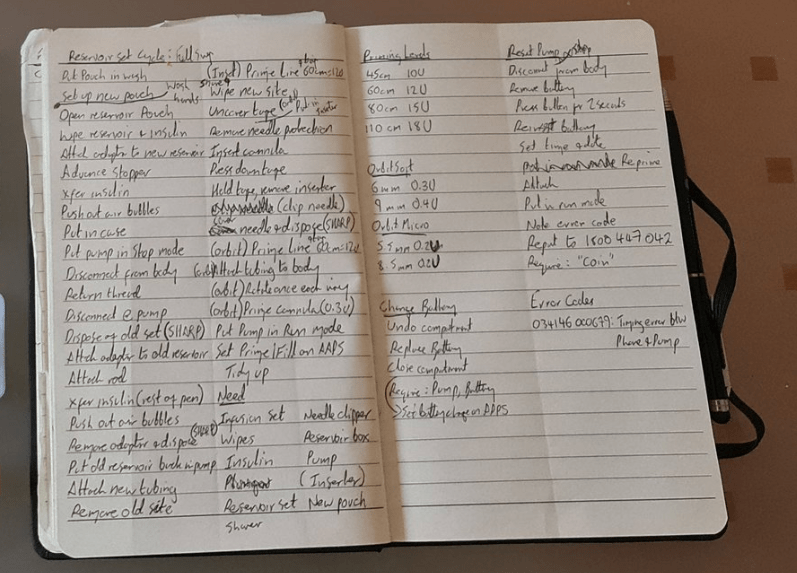 Reservoir Set Cycle: Full Swap
Put Pouch in wash
Set up new pouch wash hands
Open reservoir Pouch
Wipe reservoir & insulin
Attach adaptor to new reservoir
Advance stopper
Xfer insulin
Push out air bubbles
Put in case
Put pump in Stop mode
Disconnect from body
Return thread
Disconnect e pump
Dispose of old set (SHARP)
Attach adaptor to old reservoir
Attach rod
Xfer insulin (rest of pen)
Push out air bubbles
Remove adaptor & dispose (SHARP)
Put old reservoir back in pump
Attach new tubing
Remove old site
(Inset) Prime line 60cm=12u
Wipe new site
Uncover tape (orbit) Put in inserter
Remove needle protection
Insert cannula
Press down tape
Hold tape, remove inserter
(clip needle)
needle & dispose (SHARP)
(orbit) Prime line 60cm=12u
(orbit) Attach tubing to body
(orbit) Rotate once each way
(orbit) Prime cannula (0.3u)
Put Pump in Run mode
Set Prime/Fill on AAPS
Tidy up
Need
Infusion Set Needle clipper
Wipes Reservoir box
Insulin Pump
(Inserter)
Reservoir set New pouch
Shaver
Priming Levels
45cm 10U
60cm 12U
80cm 15U
110cm 18U
Orbit Soft
6mm 0.3U
9mm 0.4U
Orbit Micro
5.5mm 0.2U
8.5mm 0.2U
Change Battery
Undo compartment
Replace Battery
Close compartment
Require: Pump, Battery
Set battery change on AAPS
Reset Pump stop
Disconnect from body
Remove battery
Press button for 2 seconds
Reinsert battery
Set time & date
Reprime
Attach
Put in run mode
Note error code
Report to 1800 447 042
Require: "Coin"
Error Codes
034146000679: Timing error btw
Phone & Pump